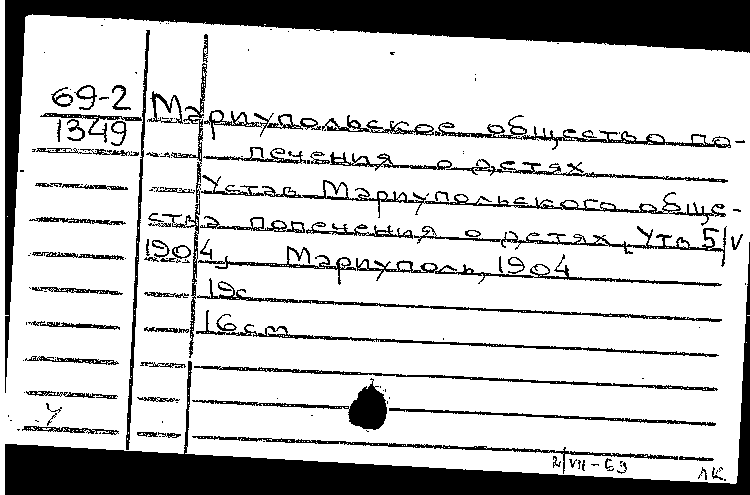 69-2
1349
Мариупольское общество по-
печения о детях.
Устав Мариупольского обще-
ства попечения о детях, Утв 5/V
1904, Мариуполь, 1904
19с
16cm
У
2/VII-69
ЛК.